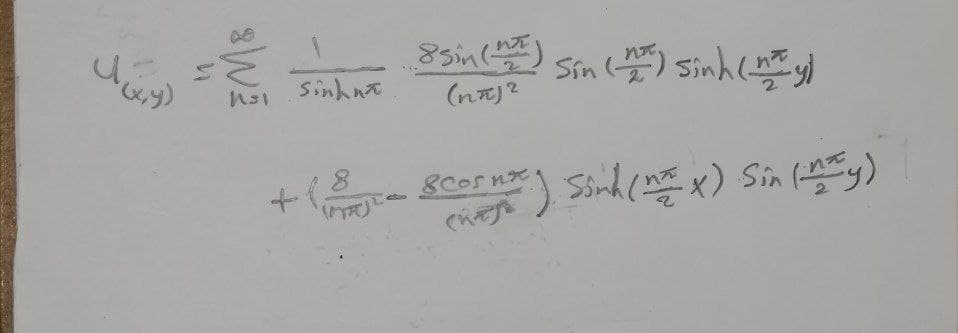 u(x,y) = ∑_{n=1}^{∞} 1/(sinh nπ) 8 sin(nπ/2)/(nπ)² sin(nπ/2) sinh(nπ/2 y)
+ (8/(nπ)² - 8 cos nπ/(nπ)²) sinh(nπ/2 x) sin(nπ/2 y)